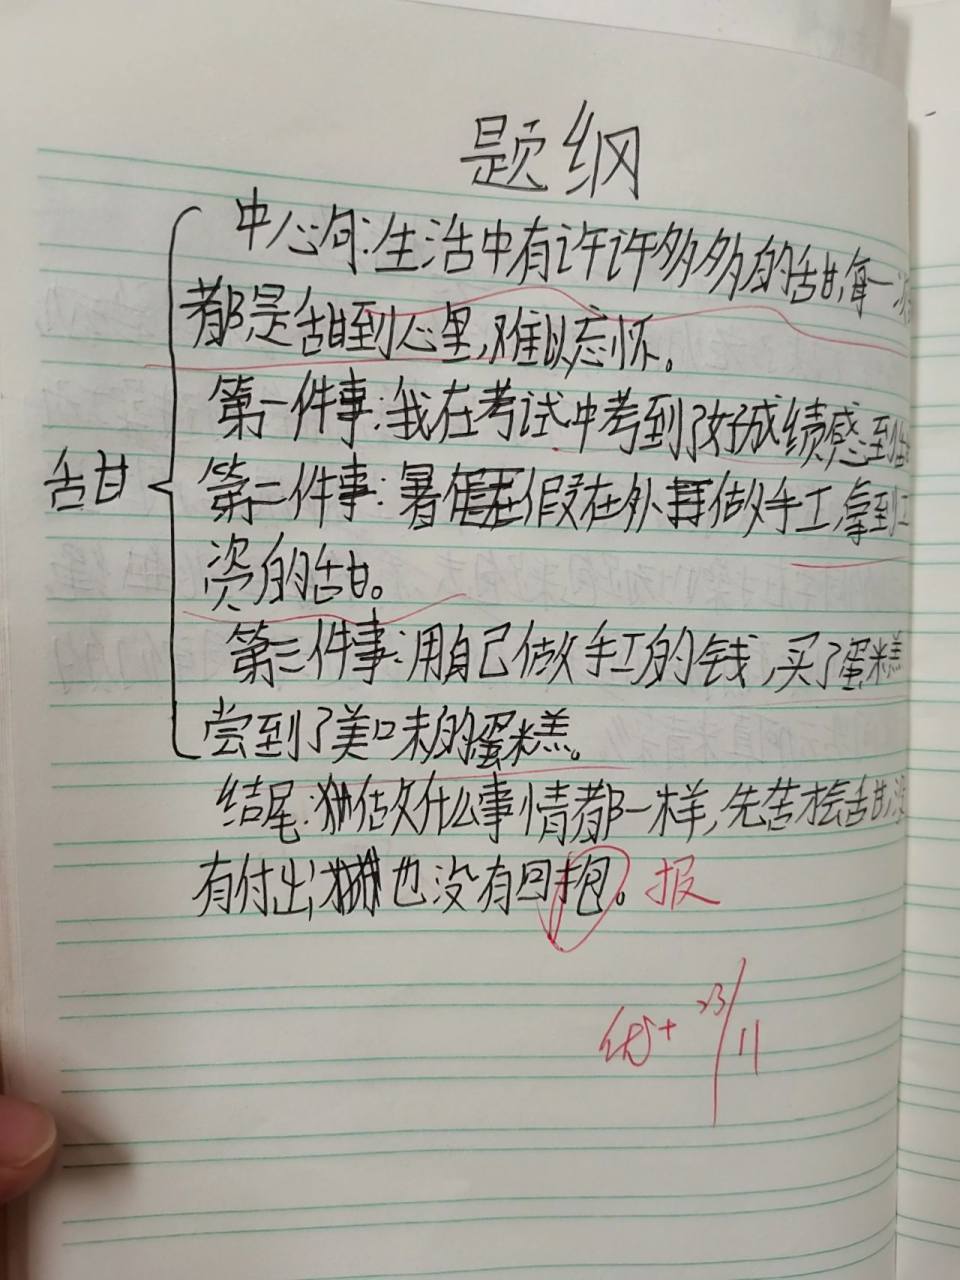 题纲
中心句:生活中有许许多多的甜,每一次
都是甜到心里,难以忘怀。
第一件事:我在考试中考到了好成绩感到
甜
第二件事:暑假在外做手工,拿到工
资的甜。
第三件事:用自己做手工的钱,买了蛋糕
尝到了美味的蛋糕。
结尾:做什么事情都一样,先苦才会甜,没
有付出,也没有回抱。报
优+ 23/11